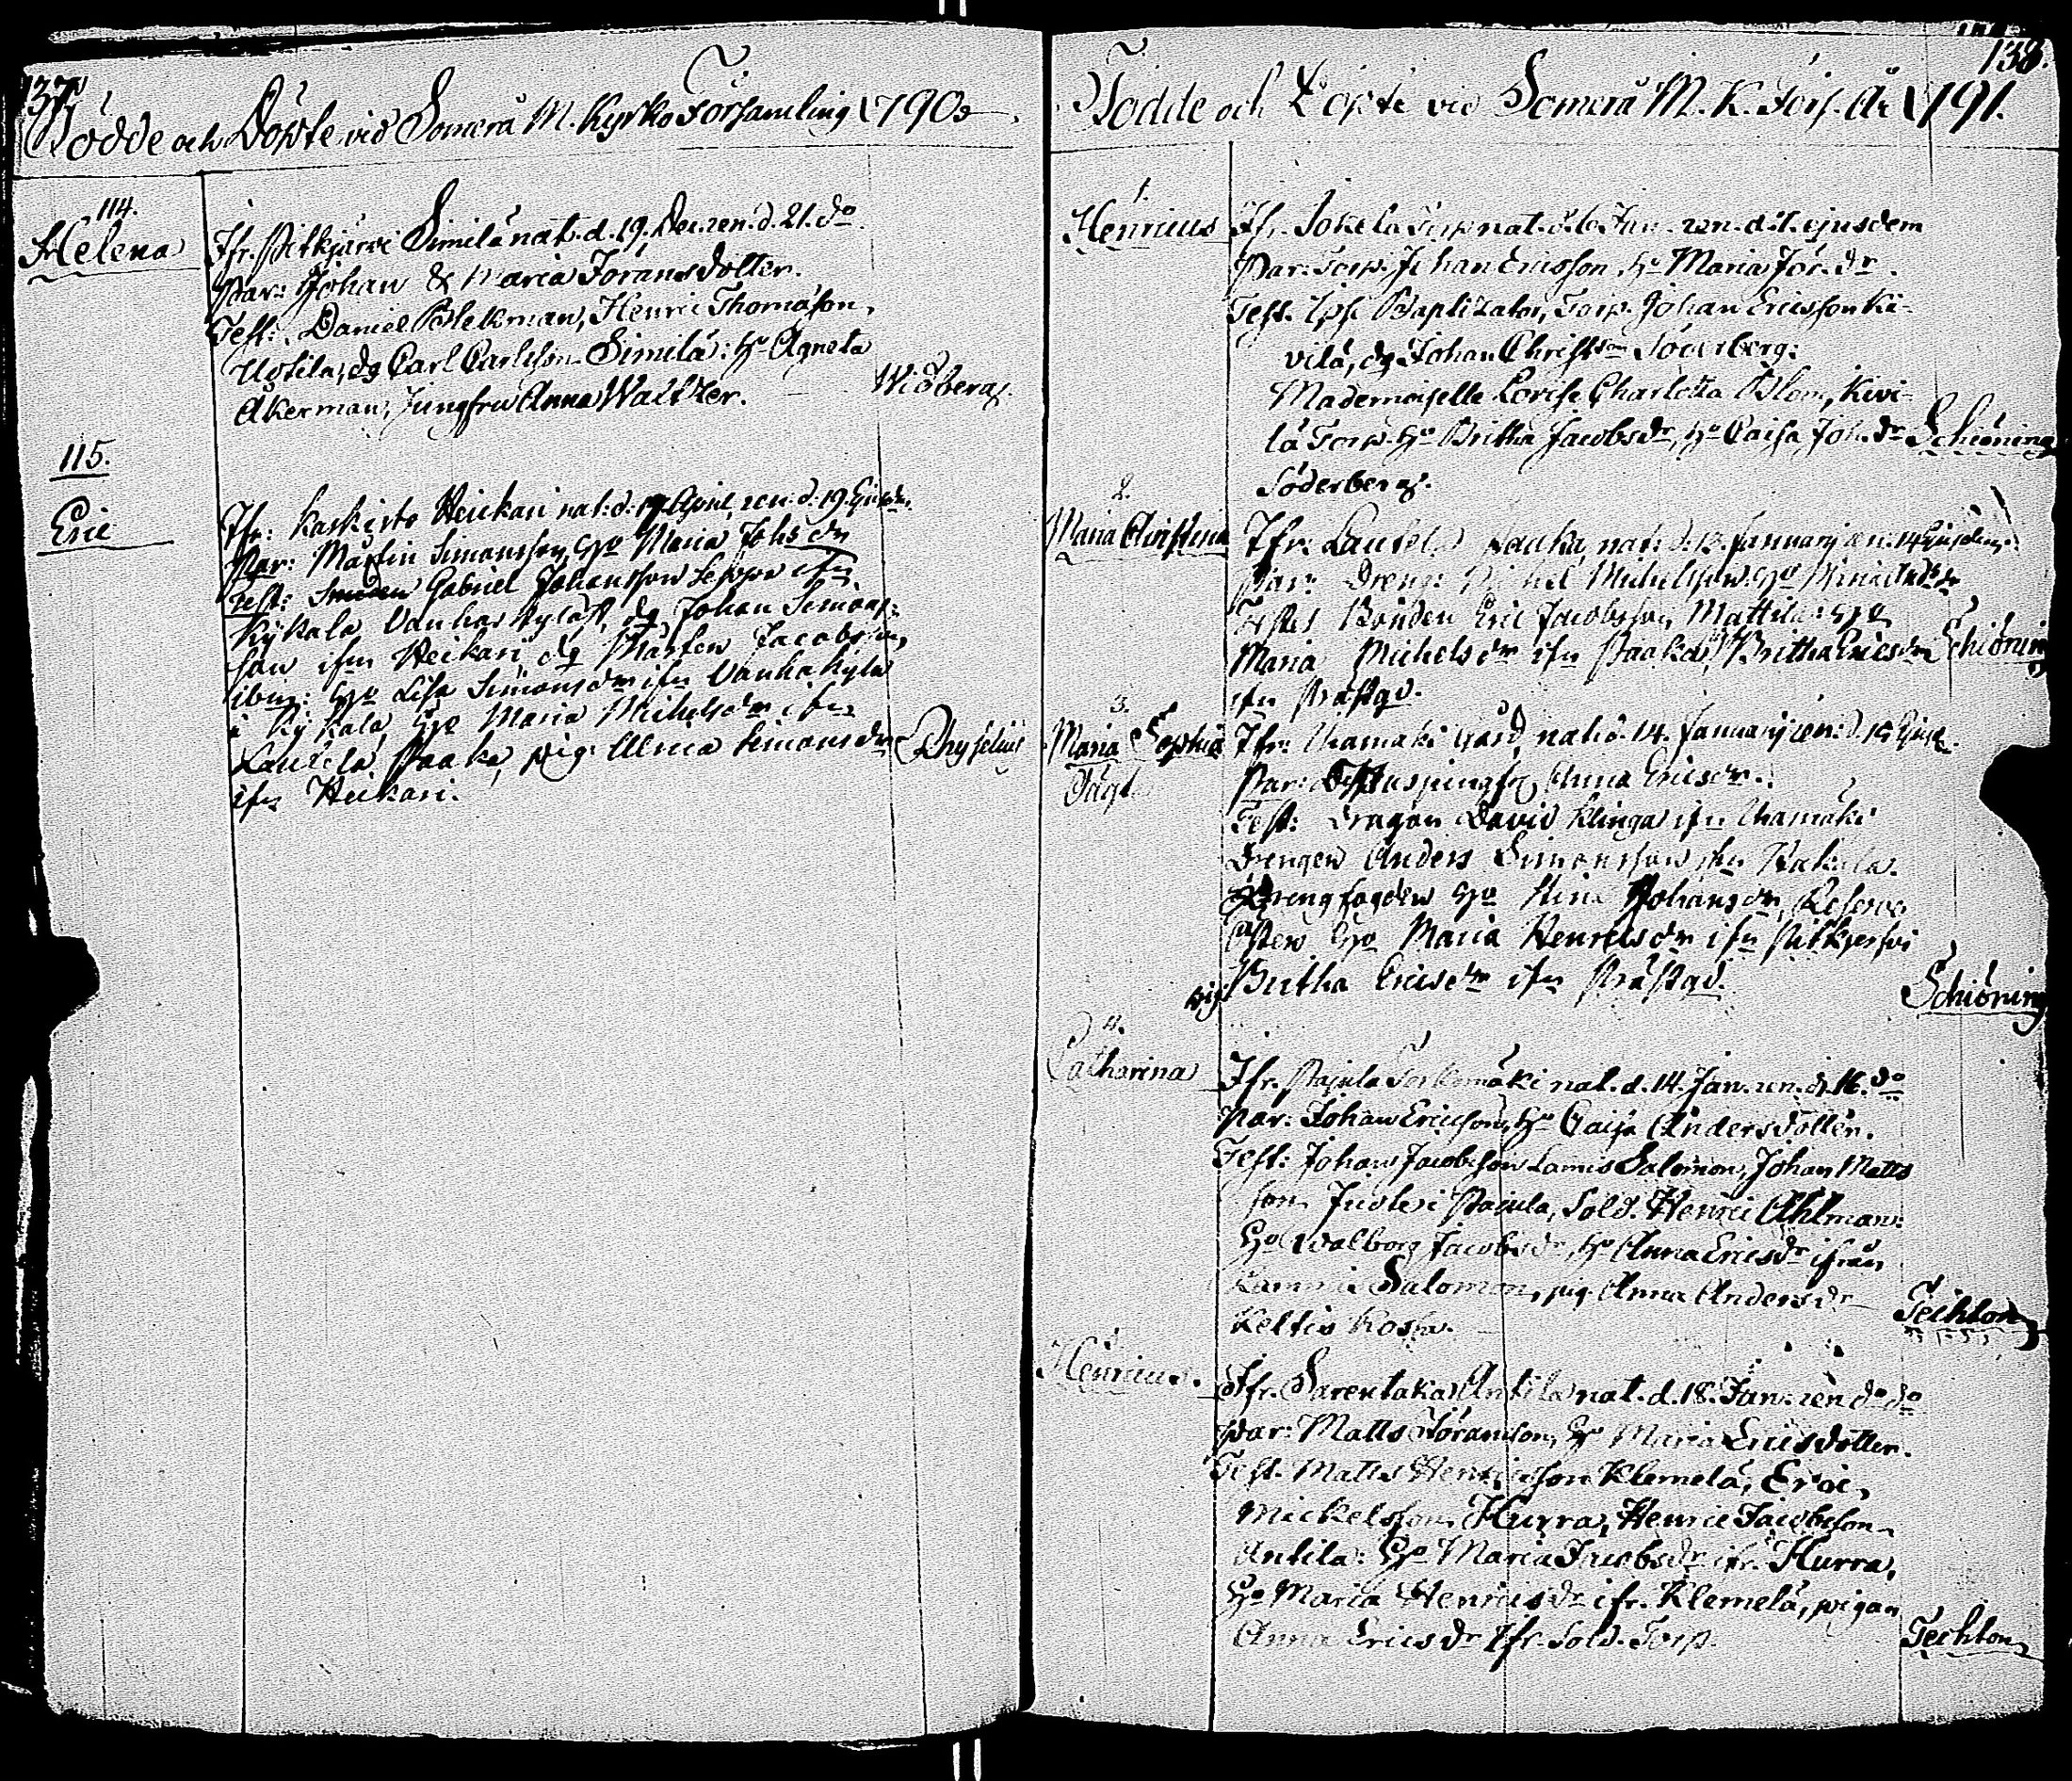 137.
Födde och Döpte vid Somerå M. Kyrko Församling 1790.
114.
Helena
Ifr. Pitkjärvi Similä nat. d. 19. Dec. ren. d. 21. do
Par: Johan & Maria Jöransdotter.
Test: Daniel Blekman, Henric Thomasson,
Uotila, dg Carl Carlsson Similä: Ho Agneta
Åkerman, Jungfru Anna Waltzer.
Widberg.
115.
Eric
Ifr: Kaskisto Heickari nat: d: April, ren: d: 19.
Par: Mårtin Simonsson, Ho Maria Johsdr
Test: Smeden Gabriel Johansson Seppä ifrn
Kÿkala Dg Johan Simons-
son ifrn Heikari, dg Mårten Jacobsson,
ibm: Ho Lisa Simonsdr ifrn Vanhakylä
i Kÿkala, Ho Maria Michelsdr ifrn
Lautela Paaka, pig: Ulrica Simonsdr
ifrn Heikari.
138.
Födde och Döpte vid Somerå M. K. Förs. År 1791.
1.
Henricus
Ifr. Torp nat. d. 6 Jan. ren. d. 7. ejusdem
Par: Torp. Johan Ericsson, Ho Maria Jör. dr.
Test. Ipse Baptizator, Torp. Johan Ericsson Ki-
vilä, dg Johan Christ:son Söderberg:
Mademoiselle Lovise Charlotta Blom, Kivi-
lä Torp. Ho Britha Jacobsdr, Ho Caisa Joh. dr
Söderberg.
Schiöning
2.
Maria Christina
Ifr: Lautela Paaka, nat: d. 13. January ren: 14 Ejusdem.
Par: Dreng: Michel Michelsson Ho
Testes Bonden Eric Jacobsson, Mattila: Ho
Maria Michelsdr ifrn Paaka, Britha Ericsdr
ifrn Prästgd.
Schiöning
3.
Maria Sophia
Oägt.
Ifr: Gård, nat: d. 14. January ren: d. 15 Ejusd.
Par: Anna Ericsdr.
Test: Dragon David Klinga ifrn
Drengen Anders Simonsson ifrn
Ho Stina Johansdr, Reserve
Ho Maria Henricsdr ifrn Pitkjerfvi
pig: Britha Ericsdr ifrn Prästgd.
Schiöning
4.
Catharina
Ifr. Pajula nat. d. 14. Jan. ren. d. 16. do
Par: Johan Ericsson, Ho Caisa Andersdotter.
Test: Johan Jacobsson Lamis Salomon, Johan Matts
son i Pajula, Sold. Henric Ahlman:
Ho Walborg Jacobsdr, Ho Anna Ericsdr ifrån
Salomon, pig. Anna Andersdr
Techlon
5
Henricus.
Ifr. Sarentaka Antila nat. d. 18. Jan. ren do do
Par: Matts Jöransson, Ho Maria Ericsdotter.
Test. Matts Henricsson Klemelä, Eric,
Mickelsson Hurra, Henric Jacobsson
Antila: Ho Maria Jacobsdr ifr. Hurra,
Ho Maria Henricsdr ifr. Klemelä, pigan
Anna Ericsdr ifr. Sold. Torp.
Techlon